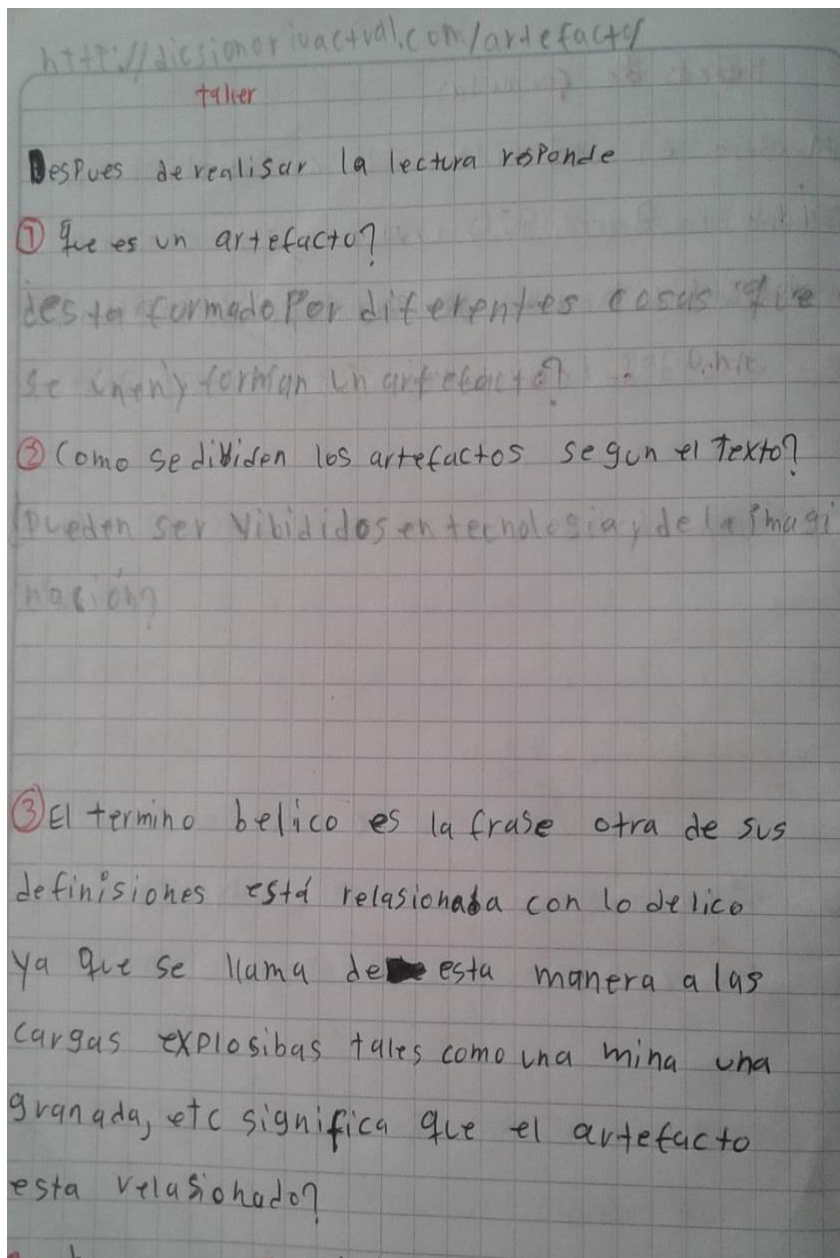 http://dicsionarioactual.com/artefacto/
taller
Despues de realisar la lectura responde
① que es un artefacto?
esta formado Por diferentes cosas que
se unen y forman un artefacto?
② Como se dibiden los artefactos segun el Texto?
Pueden ser Vibididos en tecnologia y de la imagi
nacion?
③ El termino belico es la frase otra de sus
definisiones está relasionada con lo delico
ya que se llama de esta manera a las
cargas explosibas tales como una mina una
granada, etc significa que el artefacto
esta relasionado?